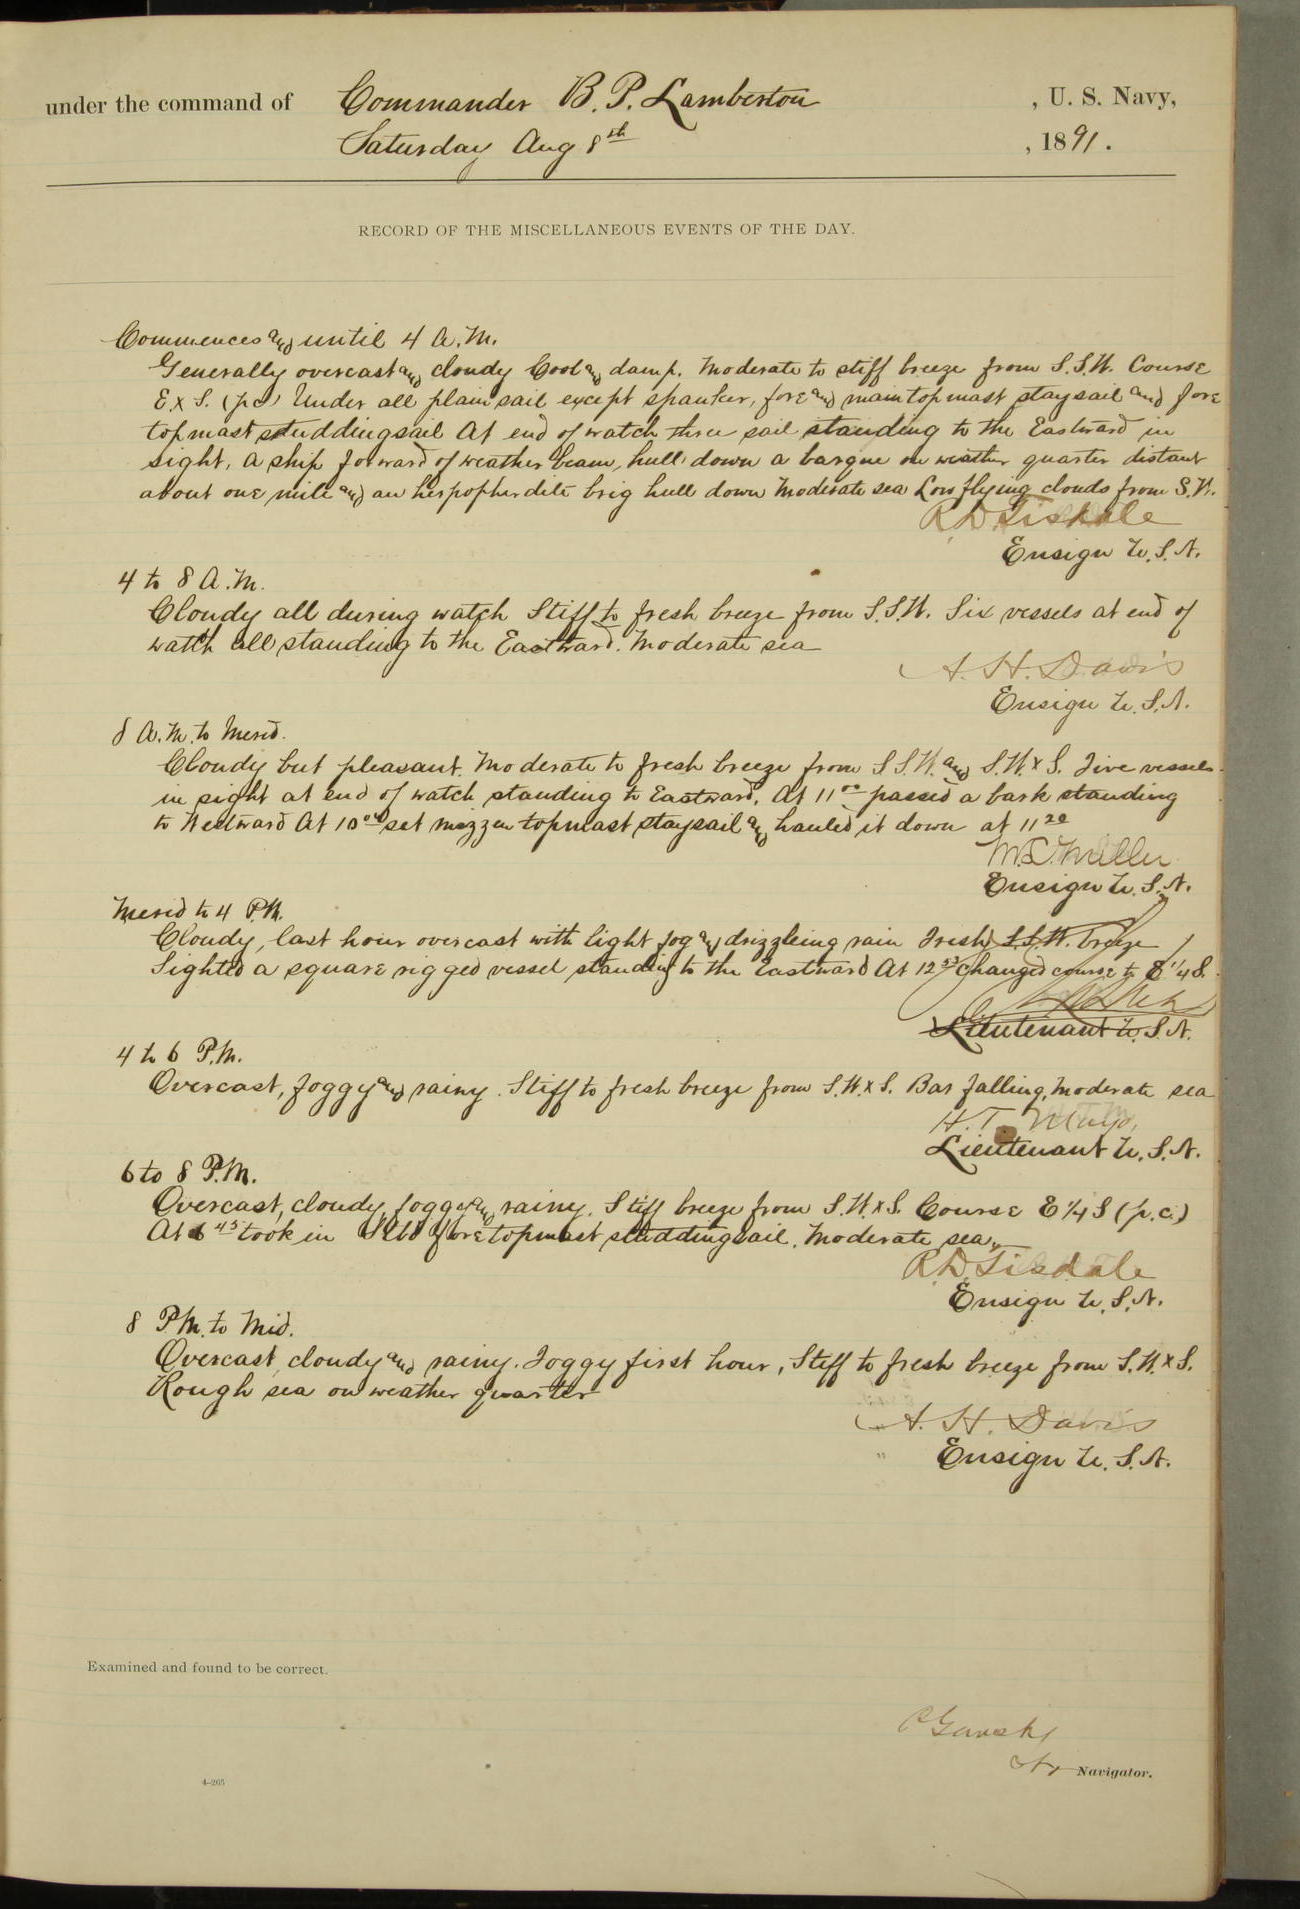 under the command of Commander B. P. Lamberton , U. S. Navy,
Saturday Aug 8th , 1891.
RECORD OF THE MISCELLANEOUS EVENTS OF THE DAY.
Commences and until 4 A.M.
Generally overcast and cloudy Cool and damp. Moderate to stiff breeze from S.S.W. Course
E x S. (p.c.) Under all plain sail except spanker, fore and main topmast staysail and fore
topmast studdingsail At end of watch three sail standing to the Eastward in
sight, A ship forward of weather beam, hull down a barque on weather quarter distant
about one mile and an herpopherdite brig hull down Moderate sea Low flying clouds from S.W.
R. D. Tisdale
Ensign U.S.N.
4 to 8 A.M.
Cloudy all during watch Stiff to fresh breeze from S.S.W. Six vessels at end of
watch all standing to the Eastward. Moderate sea
A. H. Davis
Ensign U.S.N.
8 A.M. to Merid.
Cloudy but pleasant. Moderate to fresh breeze from S.S.W. and S.W. x S. Five vessels
in sight at end of watch standing to Eastward. At 11 00 passed a bark standing
to Westward At 10 set mizzen topmast staysail and hauled it down at 11 20
M. Miller
Ensign U.S.N.
Merid to 4 P.M.
Cloudy, last hour overcast with light fog and drizzleing rain Fresh S.S.W. breeze
Sighted a square rigged vessel standing to the Eastward At 12 53 changed course to E 1/4 S.
Lieutenant U.S.N.
4 to 6 P.M.
Overcast, foggy and rainy. Stiff to fresh breeze from S.W. x S. Bar falling, moderate sea
H. T. Mayo,
Lieutenant U.S.N.
6 to 8 P.M.
Overcast, cloudy, foggy and rainy. Stiff breeze from S.W. x S. Course E 1/4 S (p.c.)
At 6 45 took in fore topmast studdingsail. Moderate sea.
R. D. Tisdale
Ensign U.S.N.
8 P.M. to Mid.
Overcast, cloudy and rainy. Foggy first hour, Stiff to fresh breeze from S.W. x S.
Rough sea on weather quarter
A. H. Davis
Ensign U.S.N.
Examined and found to be correct.
Navigator.
4-265